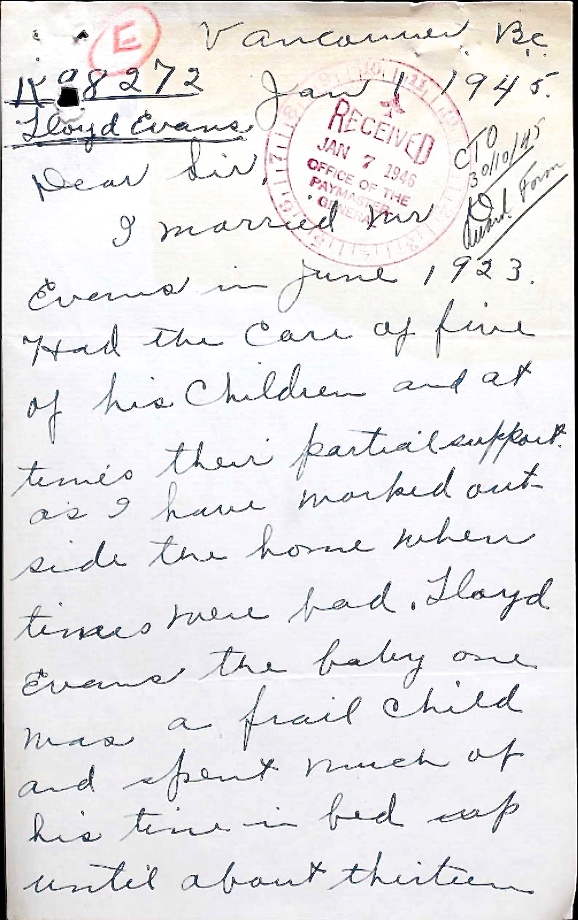 E
Vancouver, Bc
K98272
Jan 1 1945.
Lloyd Evans
RECEIVED
JAN 7 1946
OFFICE OF THE
PAYMASTER
GENERAL
CTO
30/10/45
Award Form
Dear Sir,
I married Mr
Evans in June 1923.
Had the Care of five
of his Children and at
times their partial support.
as I have worked out-
side the home when
times were bad. Lloyd
Evans the baby one
was a frail Child
and spent much of
his time in bed up
until about thirteen